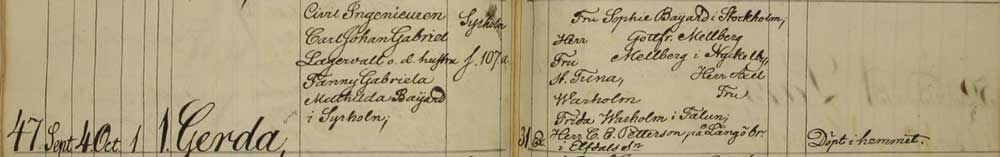 Civil Ingenieuren
Carl Johan Gabriel
Lagervall o. d. hustru
Fanny Gabriela
Mathilda Bayard
i Syrholn;
Syrholn
f. 107a
47. Sept. 4 Oct 1 1. Gerda,
Fru Sophie Bayard i Stockholm;
Herr Gottfr. Mellberg
Fru Mellberg i Nyckelby,
St. Tuna, Herr Axel
Warholm Fru
Frida Warholm i Falun;
31 Herr C. E. Petterson på Långö br.
i Elfdals Sn
Döpt i hemmet.